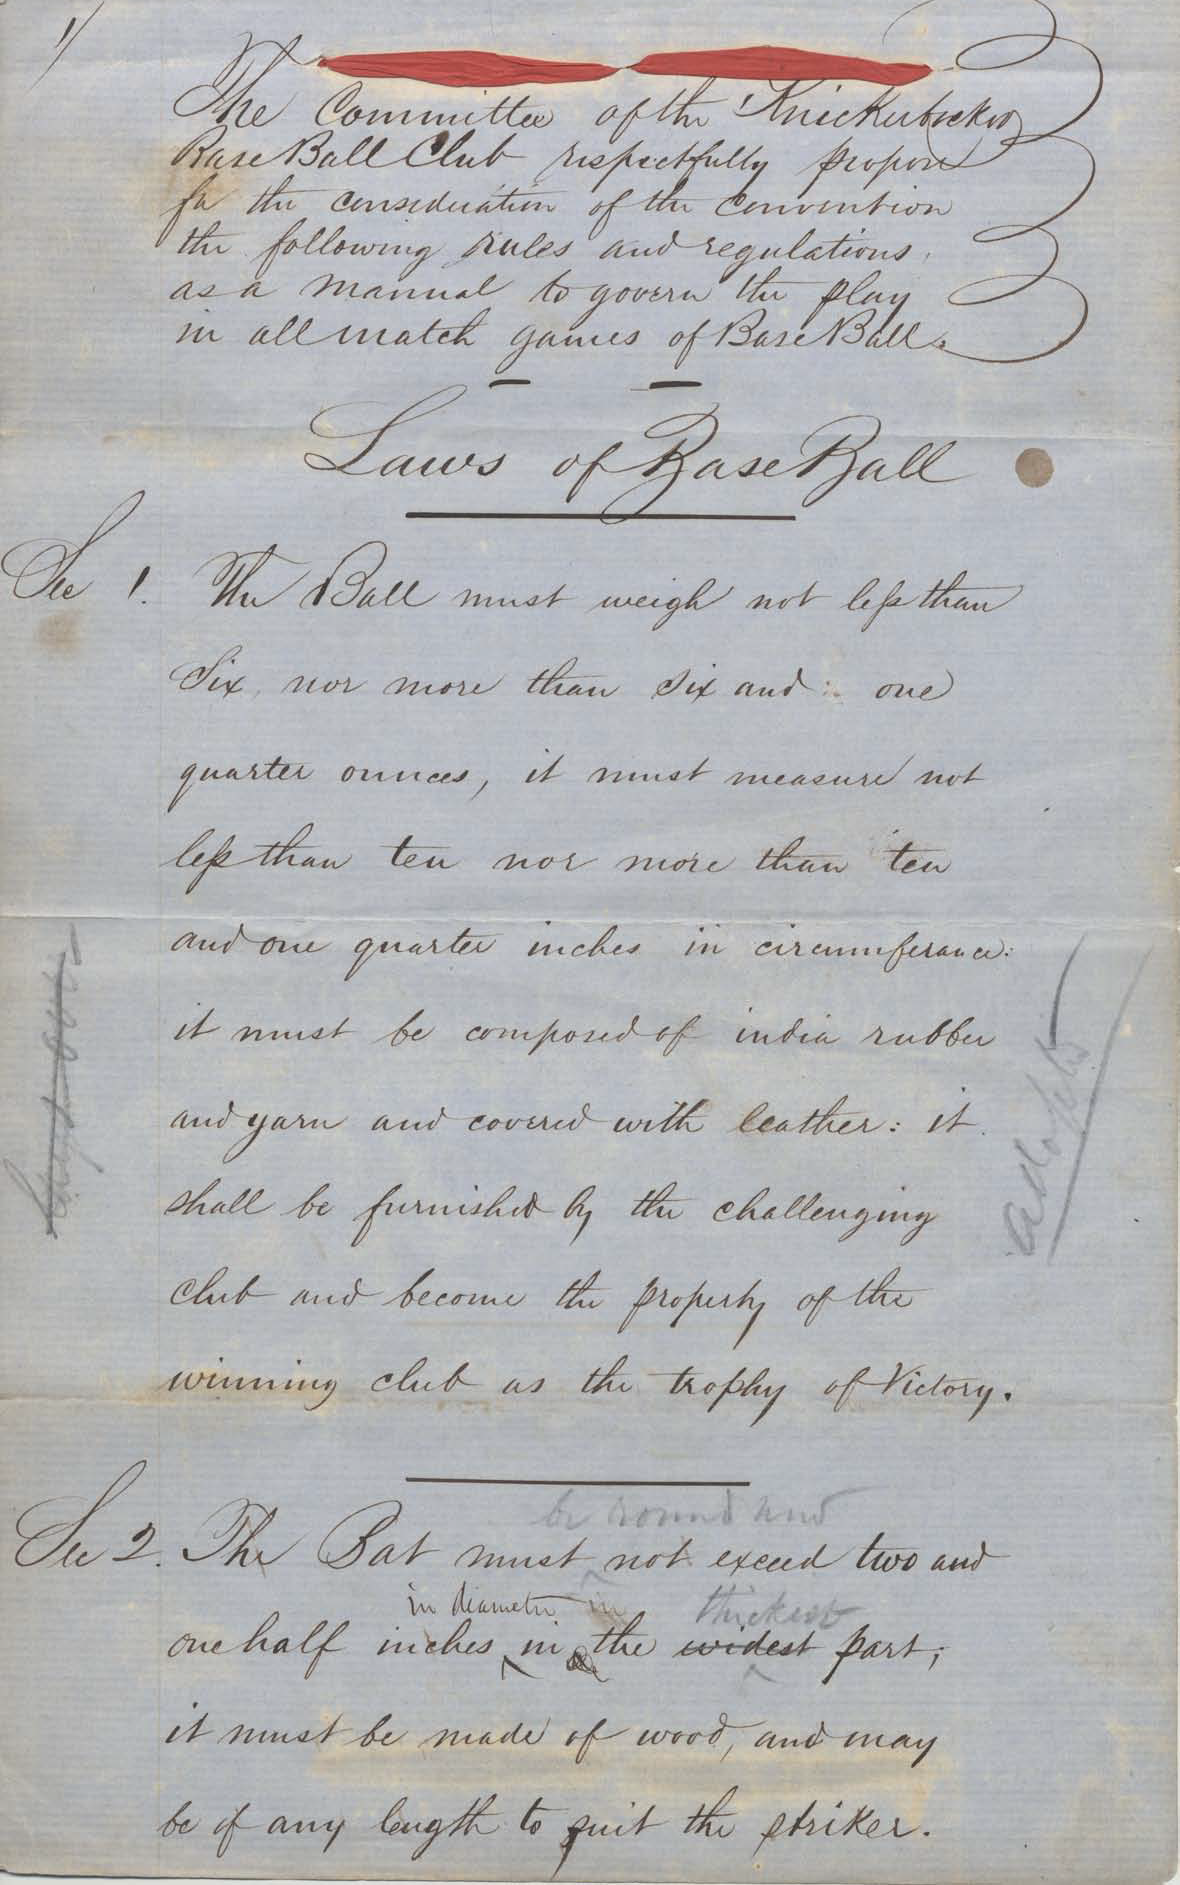 1/
The Committee of the Knickerbocker
Base Ball Club respectfully propose
for the consideration of the convention
the following rules and regulations,
as a manual to govern the play
in all match games of Base Ball.
Laws of Base Ball
Sec 1. The Ball must weigh not less than
six, nor more than six and one
quarter ounces, it must measure not
less than ten nor more than ten
and one quarter inches in circumferance:
it must be composed of india rubber
and yarn and covered with leather: it
shall be furnished by the challenging
club and become the property of the
winning club as the trophy of Victory.
Adopted
be round and
Sec 2. The Bat must not exceed two and
in diameter in thickest
one half inches in the widest part;
it must be made of wood, and may
be of any length to suit the striker.